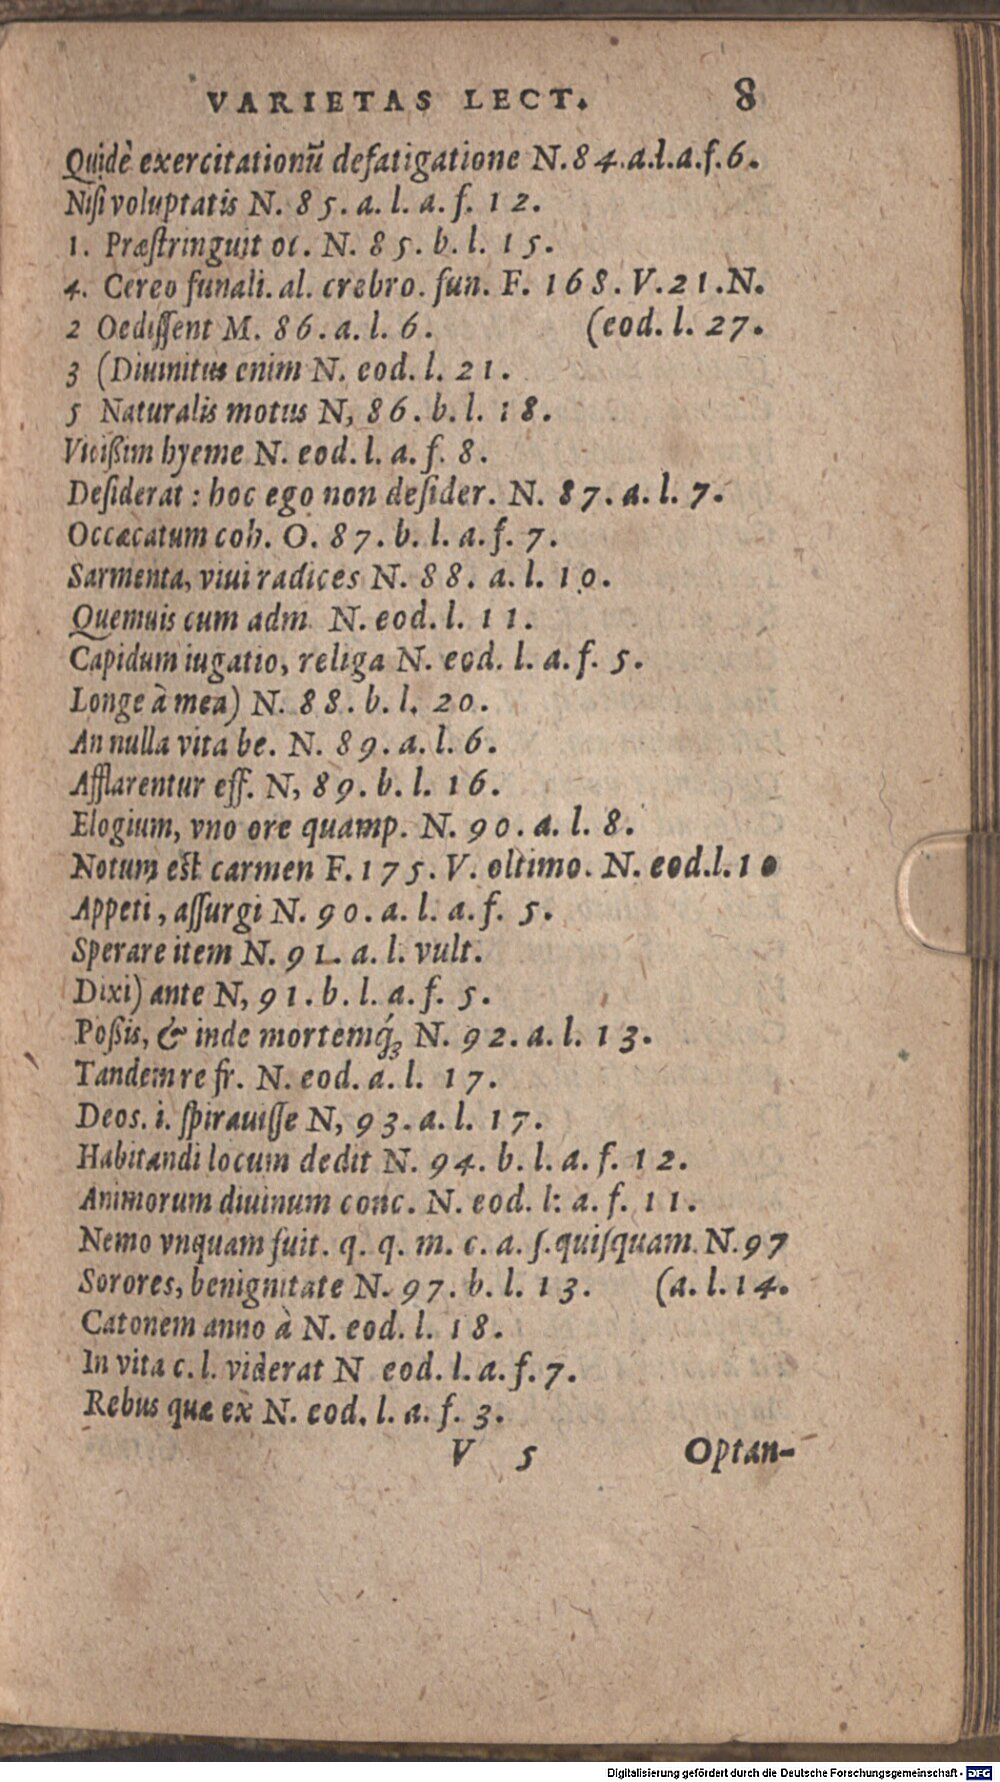 VARIETAS LECT. 8
Quidē exercitationū defatigatione N. 84.a.l.a.f.6.
Nisi voluptatis N. 85. a. l. a. f. 12.
1. Præstringuit oc. N. 85. b. l. 15.
4. Cereo funali. al. crebro. fun. F. 168. V.21.N.
2 Oedissent M. 86. a. l. 6. (eod. l. 27.
3 (Diuinitus enim N. eod. l. 21.
5 Naturalis motus N, 86. b. l. 18.
Vicißim hyeme N. eod. l. a. f. 8.
Desiderat : hoc ego non desider. N. 87. a. l. 7.
Occæcatum coh. O. 87. b. l. a. f. 7.
Sarmenta, viui radices N. 88. a. l. 10.
Quemuis cum adm. N. eod. l. 11.
Capidum iugatio, religa N. eod. l. a. f. 5.
Longe à mea) N. 88. b. l. 20.
An nulla vita be. N. 89. a. l. 6.
Afflarentur eff. N, 89. b. l. 16.
Elogium, vno ore quamp. N. 90. a. l. 8.
Notum est carmen F. 175. V. oltimo. N. eod.l.10
Appeti, assurgi N. 90. a. l. a. f. 5.
Sperare item N. 91. a. l. vult.
Dixi) ante N, 91. b. l. a. f. 5.
Poßis, & inde mortemq́ꝫ N. 92. a. l. 13.
Tandem re fr. N. eod. a. l. 17.
Deos. i. spirauisse N, 93. a. l. 17.
Habitandi locum dedit N. 94. b. l. a. f. 12.
Animorum diuinum conc. N. eod. l: a. f. 11.
Nemo vnquam fuit. q. q. m. c. a. s. quisquam. N.97
Sorores, benignitate N. 97. b. l. 13. (a. l. 14.
Catonem anno à N. eod. l. 18.
In vita c. l. viderat N eod. l. a. f. 7.
Rebus quæ ex N. eod. l. a. f. 3.
V 5 Optan-
Digitalisierung gefördert durch die Deutsche Forschungsgemeinschaft - DFG